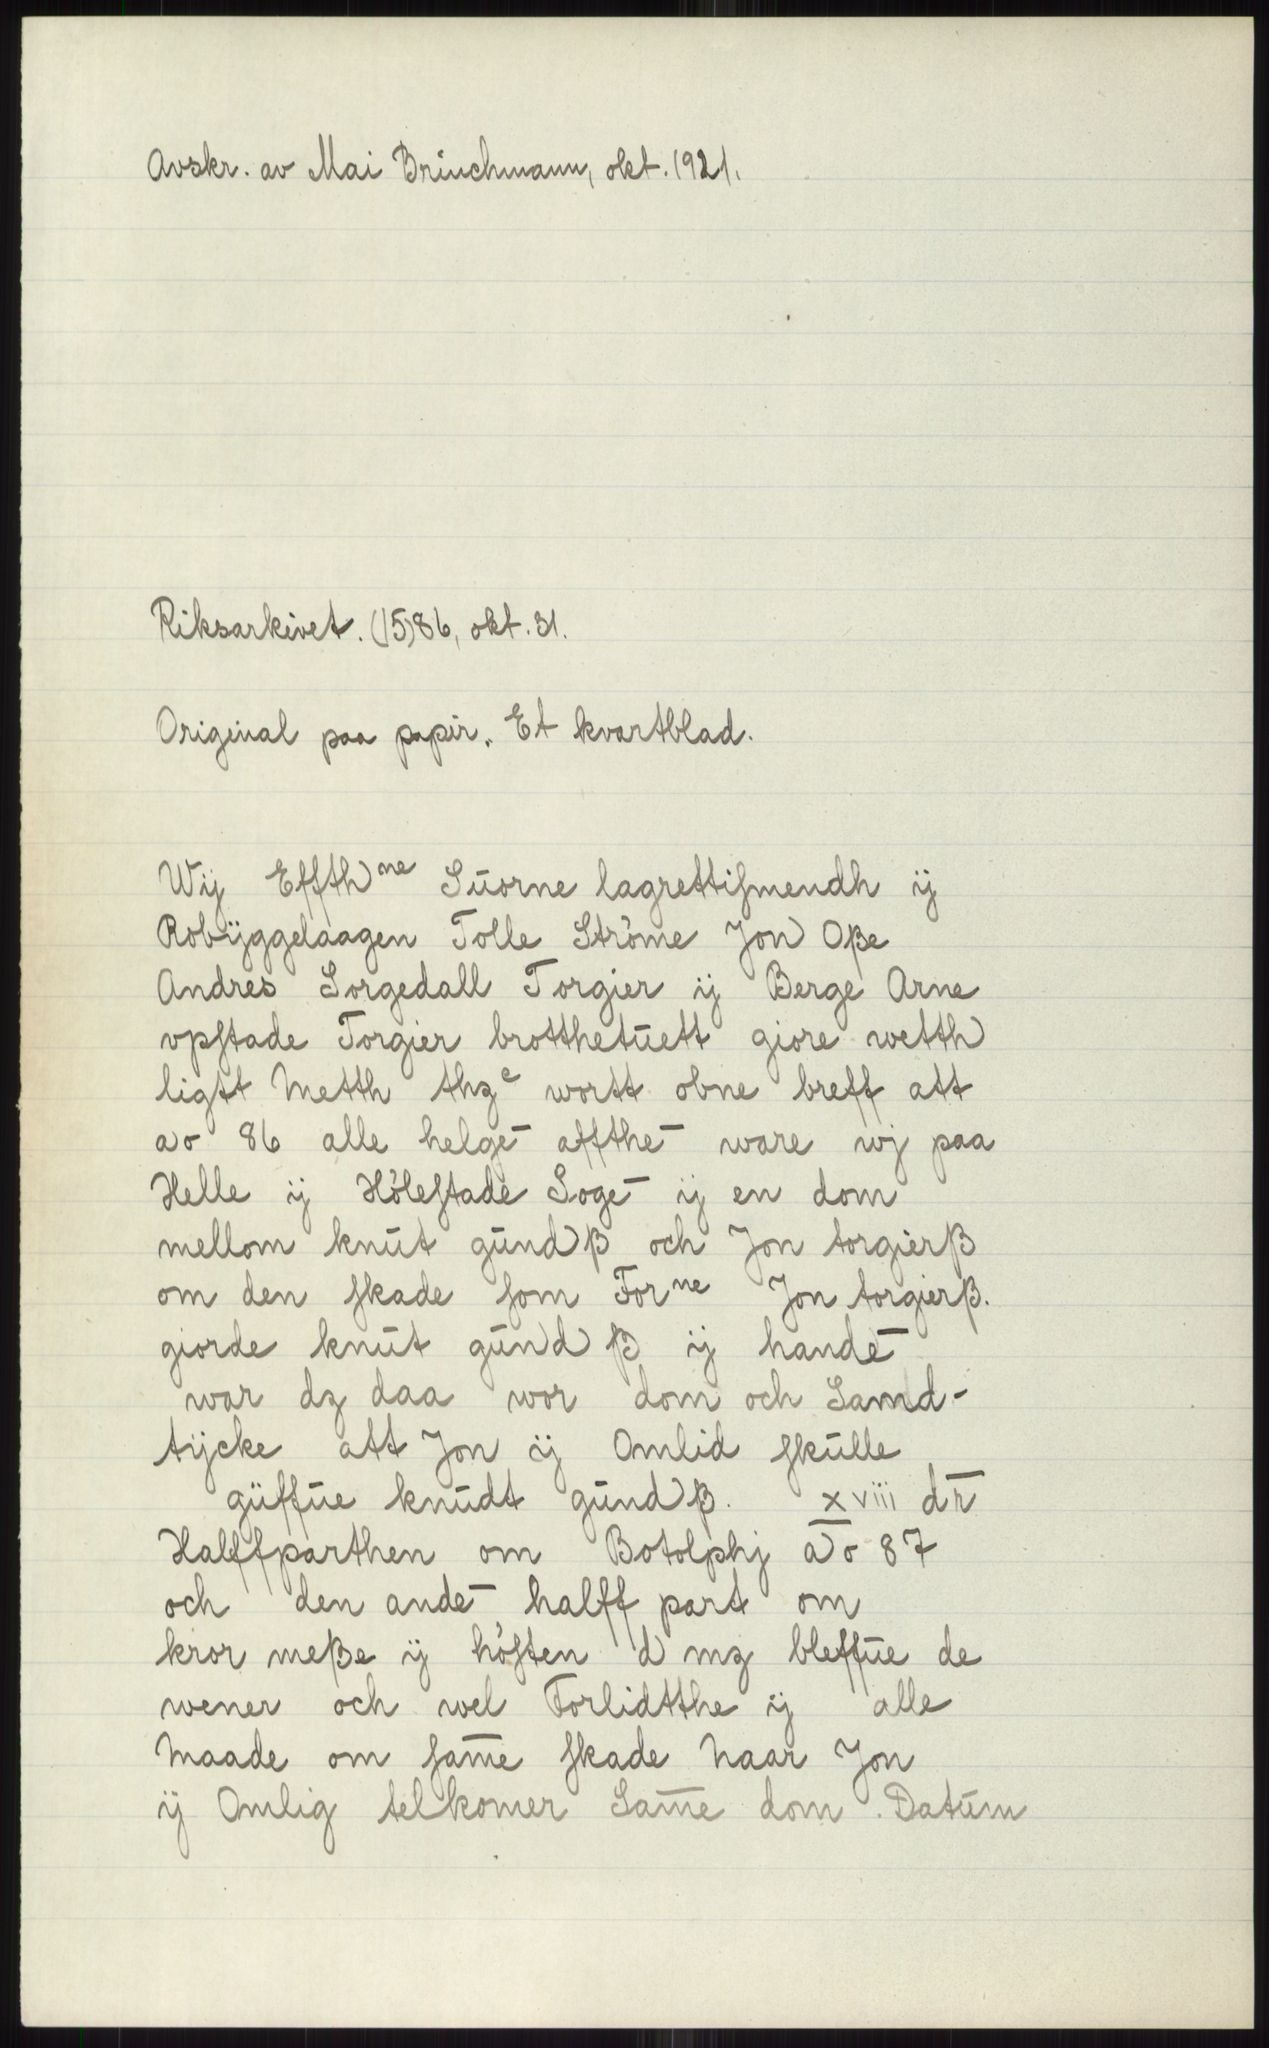 Avskr. av Mai Brinchmann, okt. 1921.
Riksarkivet. (15)86, okt. 31.
Original paa papir. Et kvartblad.
Wij Effthne Suorne lagrettiſmendh ij
Robÿggelaagen Tolle Strøme Jon Oße
Andres Sorgedall Torgier ij Berge Arne
vpſtade Torgier brotthetuett giore wetth
ligtt Metth thze wortt obne breff att
ao 86 alle helgē affthē ware wj paa
Helle ij Høleſtade Sogē ij en dom
mellom knut gundß och Jon torgierß
om den ſkade ſom Forne Jon torgierß.
giorde knut gund ß ij handē
war dz daa wor dom och Samd-
tÿcke att Jon ij Omlid ſkulle
güffue knudt gundß. xviii dr̄
Halffparthen om Botolphj āo 87
och den andē halff part om
kror meße ij høſten d mz bleffue de
wener och wel Forlidtthe ij alle
Maade om ſam̄e ſkade Naar Jon
ij Omlig telkomer Sam̄e dom. Datum